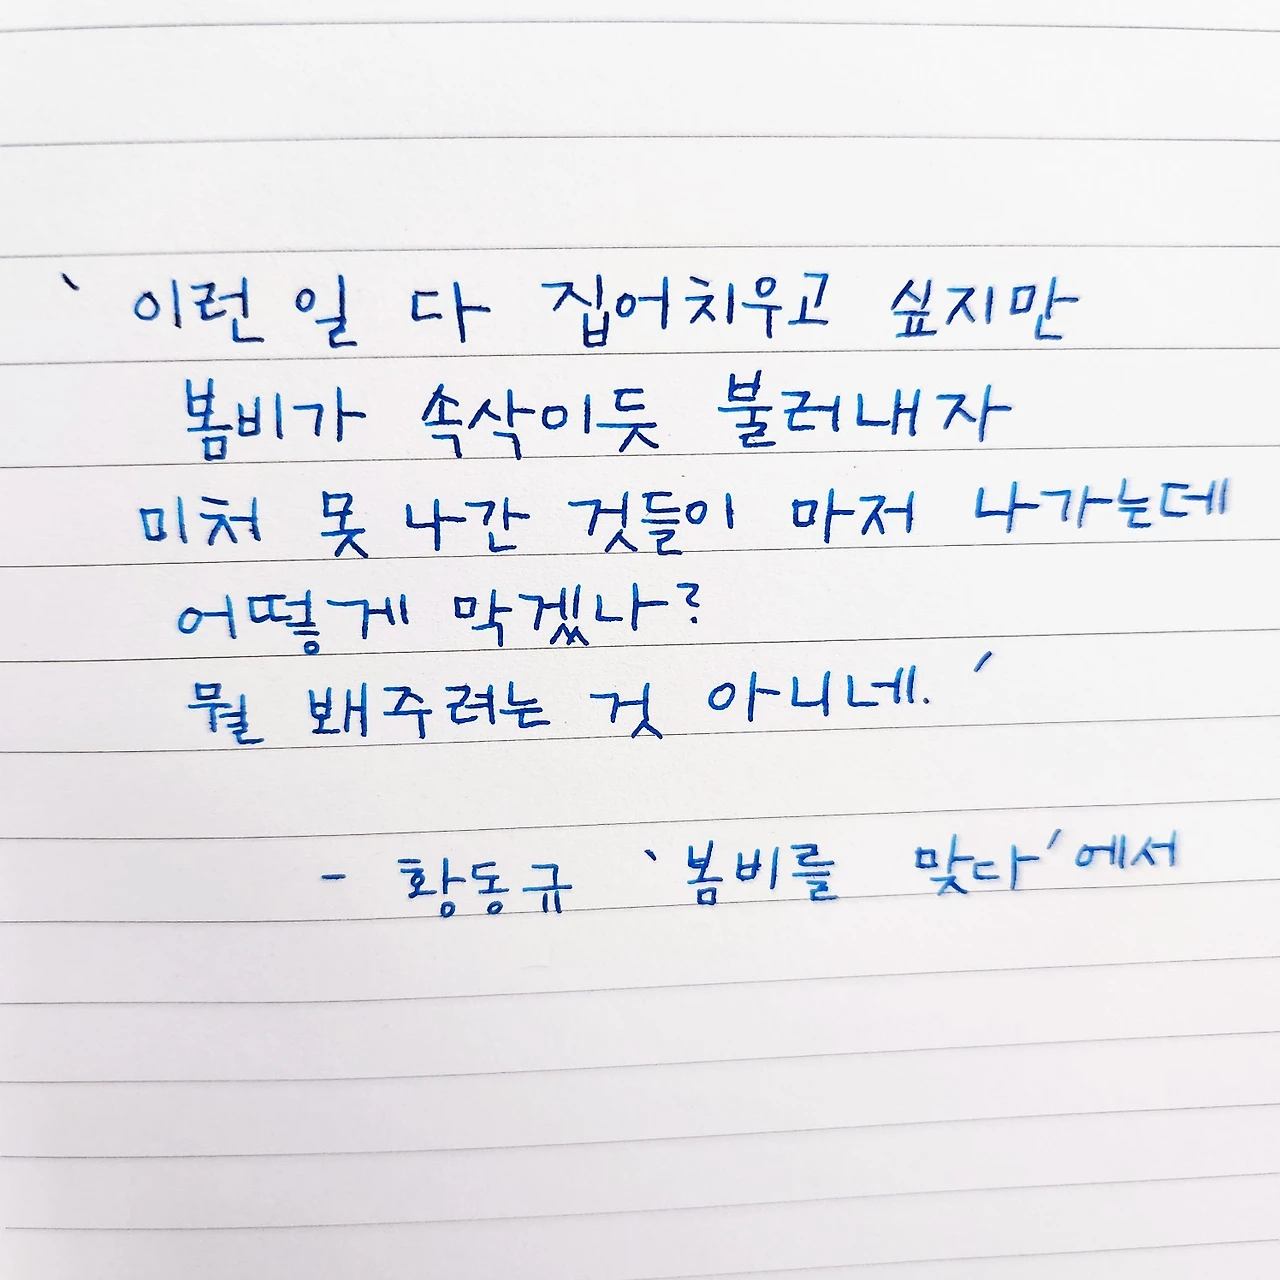 ‘이런 일 다 집어치우고 싶지만
봄비가 속삭이듯 불러내자
미처 못 나간 것들이 마저 나가는데
어떻게 막겠나?
뭘 봬주려는 것 아니네.’
- 황동규 ‘봄비를 맞다’에서